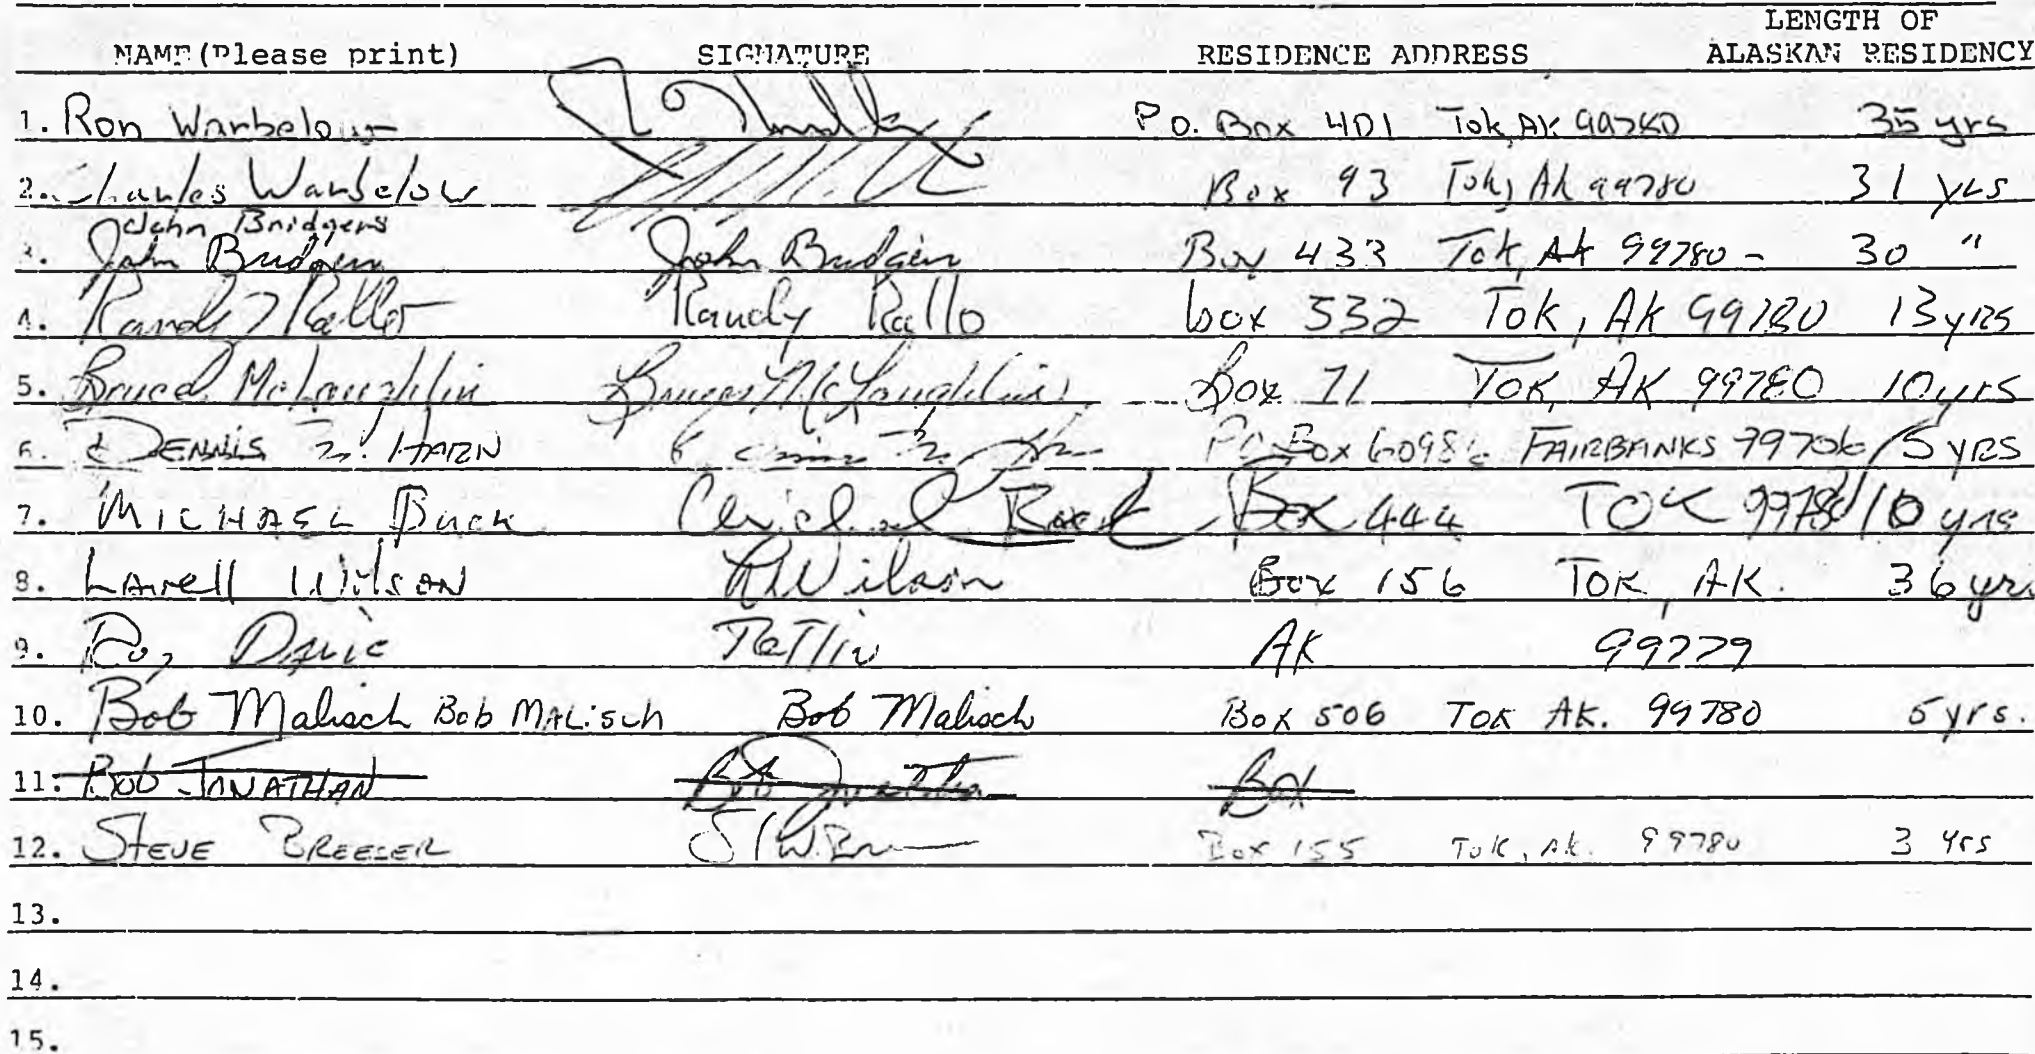 LENGTH OF
NAME(Please print) SIGNATURE RESIDENCE ADDRESS ALASKAN RESIDENCY
1. Ron Warbelow P.O. Box 401 Tok, AK 99780 35 yrs
2. Charles Warbelow Box 93 Tok, Ak 99780 31 yrs
John Bridgers
3. John Bridgers John Bridgers Box 433 Tok, Ak 99780 - 30 "
4. Randy Rallo Randy Rallo box 532 Tok, Ak 99780 13 yrs
5. Bruce McLaughlin Bruce McLaughlin Box 71 Tok, AK 99780 10 yrs
6. DENNIS HARN PO Box FAIRBANKS 99706 15 YRS
7. MICHAEL Buck Michael Buck Box 444 TOK 99780 10 yrs
8. Larell Wilson Wilson Box 156 TOK, AK. 36 yrs
9. Roy David Tetlin AK 99779
10. Bob Malisch Bob MALisch Bob Malisch Box 506 TOK AK. 99780 5 yrs.
11. Bob JONATHAN Bob Jonathan Box
12. STEVE BREESER Box 155 Tok, Ak. 99780 3 yrs
13.
14.
15.